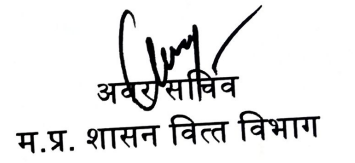 अवर सचिव
म.प्र. शासन वित्त विभाग